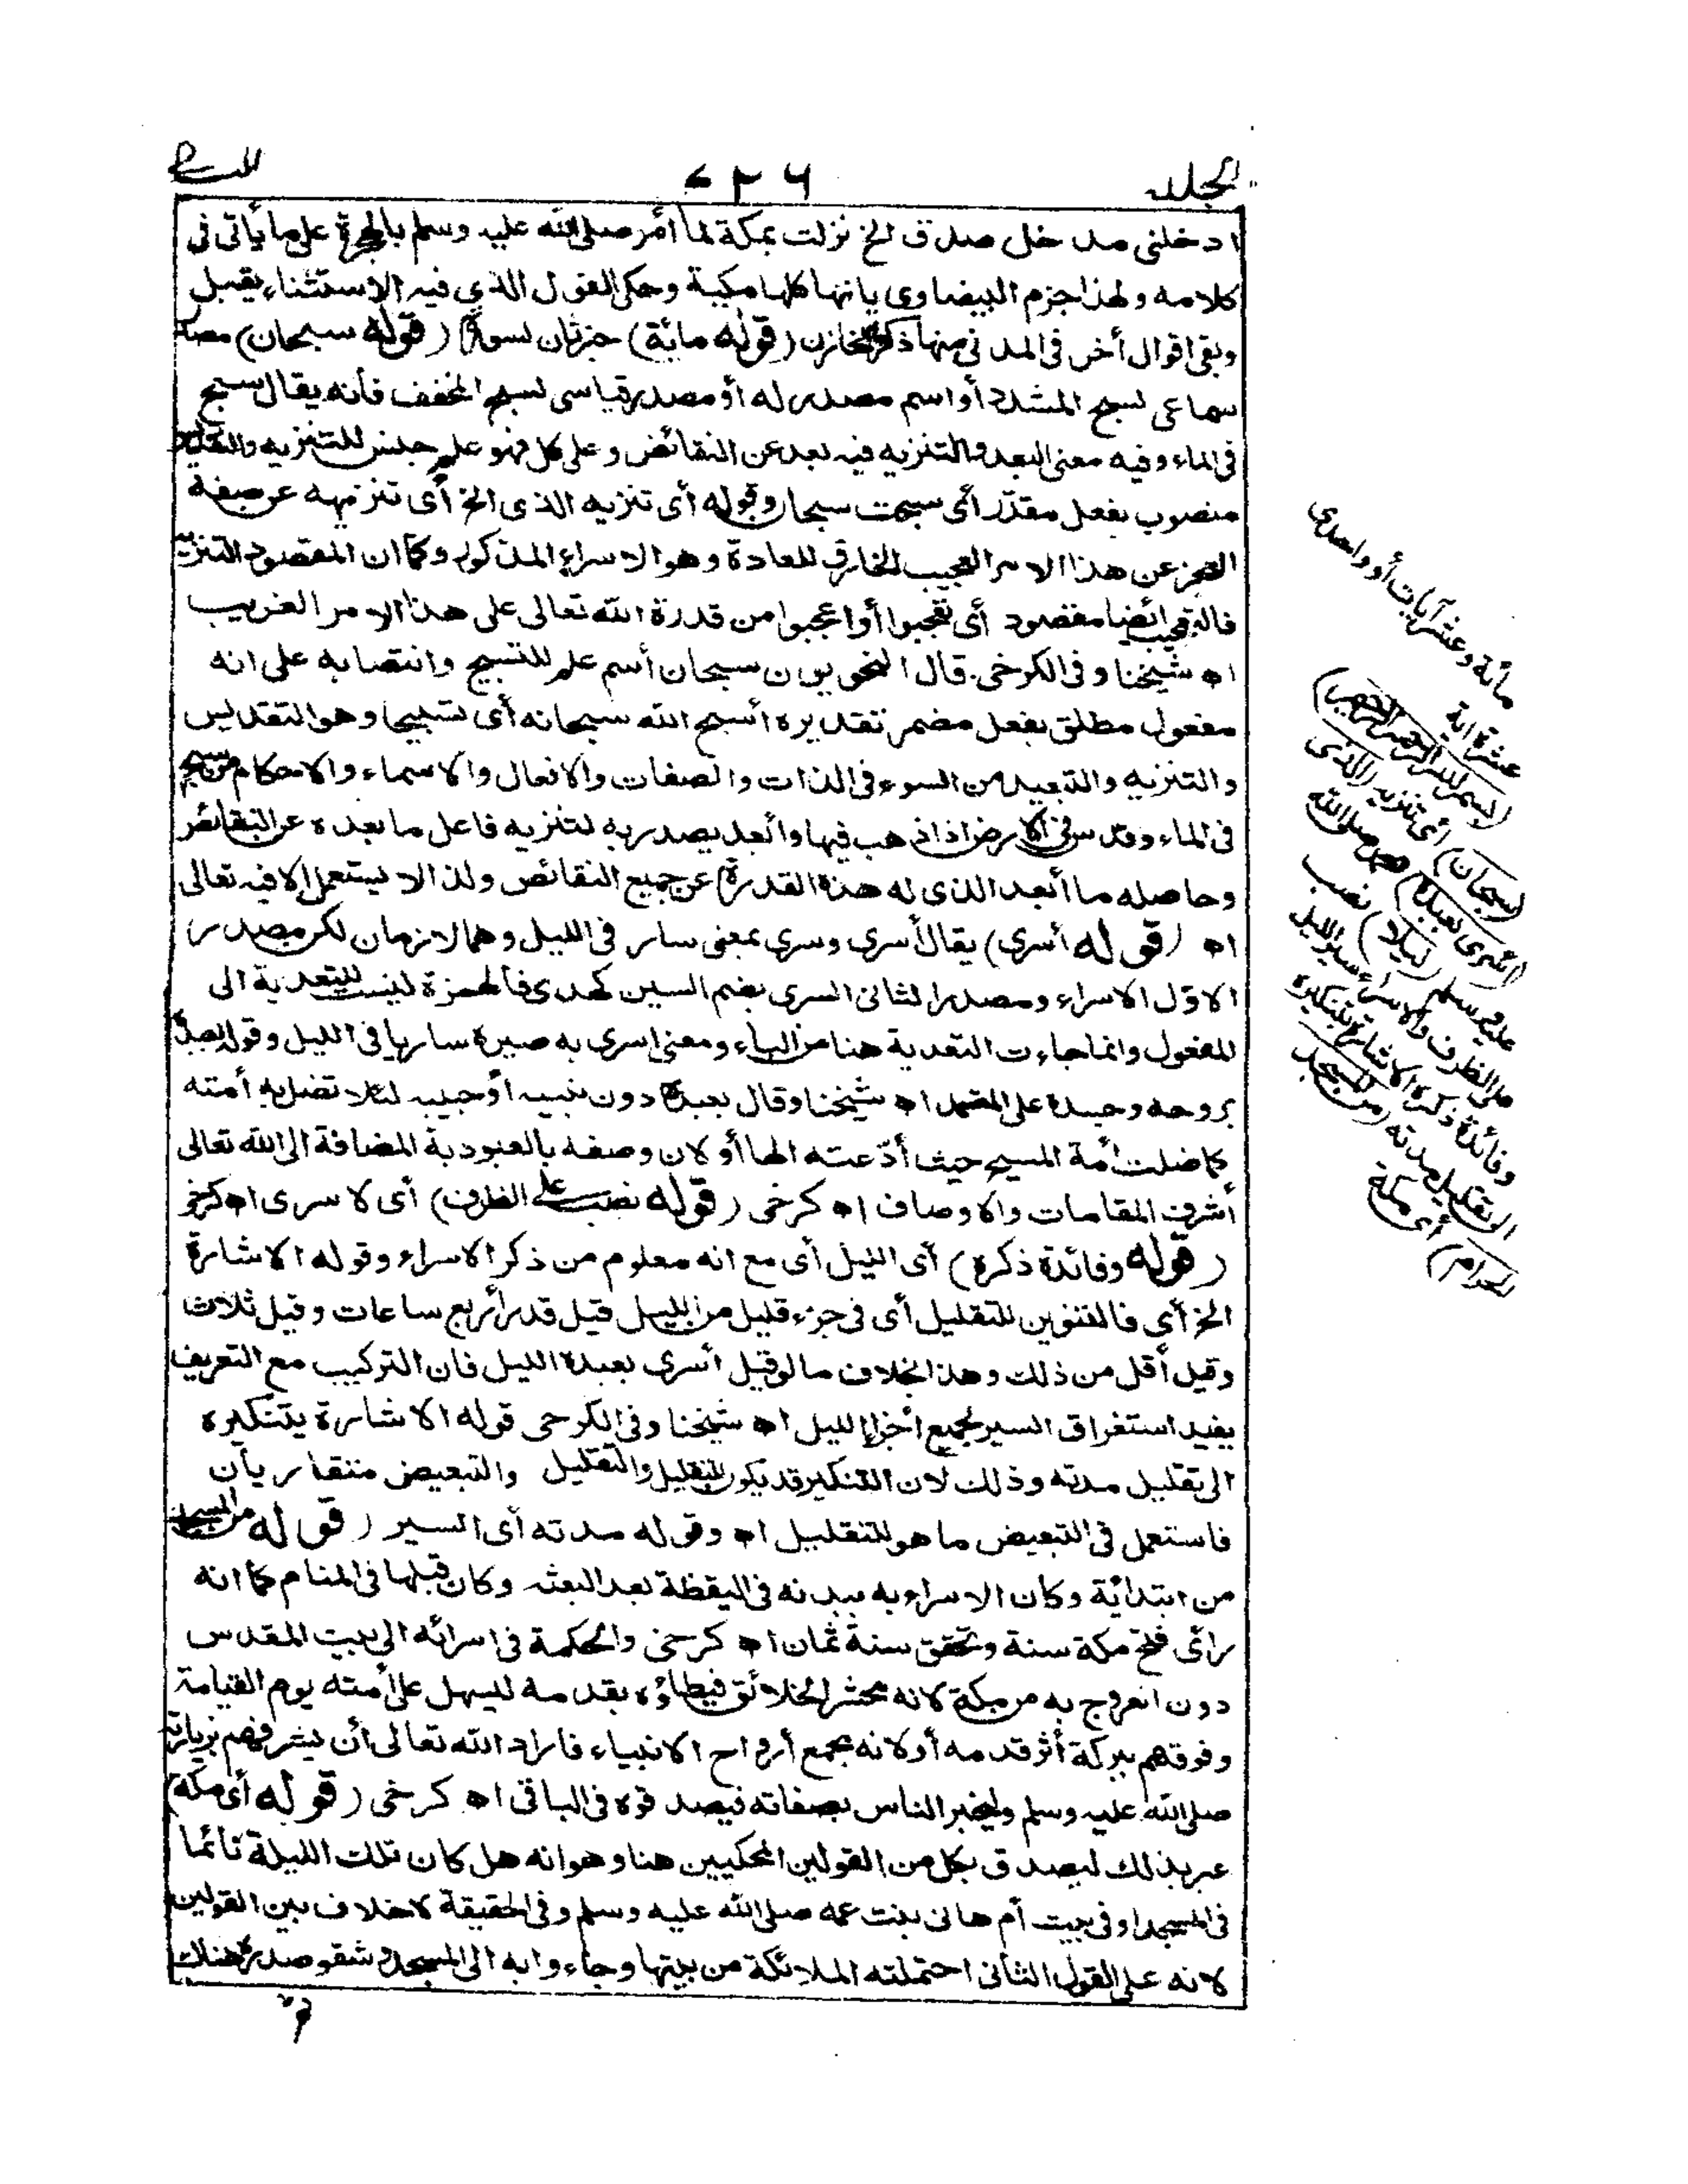 المجلد
٧٢٦
ادخلنى مدخل صدق الخ نزلت بمكة لما أمر صلى الله عليه وسلم بالهجرة على ما يأتى فى
كلامه ولهذا جزم البيضاوى بانها كلها مكية وحكى القول الذي فيه الاستثناء بقيل
وبقى اقوال أخر فى المدنى منها ذكره الخازن (قوله مائة) خبر ثان لسورة (قوله سبحان) مصدر
سماعى لسبح المشدد أو اسم مصدر له أو مصدر قياسى لسبح المخفف فأنه يقال سبح
فى الماء وفيه معنى البعد والتنزيه فيه بعد عن النقائض وعلى كل فهو علم جنس للتنزيه والتقديس
منصوب بفعل مقدّر أى سبحت سبحان وقوله أى تنزيه الذى الخ أى تنزيهه عن صفة
العجز عن هذا الامر العجيب الخارق للعادة وهو الاسراء المذكور وكما ان المقصود التنزيه
فالتعجيب ائضا مقصود أى تعجبوا أو اعجبوا من قدرة الله تعالى على هذا الامر الغريب
اه شيخنا وفى الكرخى قال النحويون سبحان أسم علم للتسبيح وانتصابه على انه
مفعول مطلق بفعل مضمر تقديره أسبح الله سبحانه أى تسبيحا وهو التقديس
والتنزيه والتبعيد من السوء فى الذات والصفات والافعال والاسماء والاحكام من سبح
فى الماء وقدس فى الارض اذا ذهب فيها وأبعد يصدر به لتنزيه فاعل ما بعده عن النقائض
وحاصله ما أبعد الذى له هذه القدرة عن جميع النقائض ولذا لا يستعمل الا فيه تعالى
اه (قوله أسرى) يقال أسرى وسرى بمعنى سار فى الليل وهما لازمان لكن مصدر
الاوّل الاسراء ومصدر الثانى السرى بضم السين كهدى فالهمزة ليست للتعدية الى
المفعول وانما جاءت التعدية هنا من الباء ومعنى اسرى به صيره ساريا فى الليل وقوله بعبده
بروحه وجسده على المعتمد اه شيخنا وقال بعبده دون نبيه أو حبيبه لئلا تضل به أمته
كما ضلت أمة المسيح حيث أدّعته الها أو لان وصفه بالعبودية المضافة الى الله تعالى
أشرف المقامات والاوصاف اه كرخى (قوله نصب على الظرف) أى لاسرى اه كرخى
(قوله وفائدة ذكره) أى الليل أى مع انه معلوم من ذكر الاسراء وقوله الاشارة
الخ أي فالتنوين للتقليل أى فى جزء قليل من الليل قيل قدر أربع ساعات وقيل ثلاث
وقيل أقل من ذلك وهذا بخلاف ما لو قيل أسرى بعبده الليل فان التركيب مع التعريف
يفيد استغراق السير لجميع أجزاء الليل اه شيخنا وفى الكرخى قوله الاشارة بتنكيره
الى تقليل مدته وذلك لان التنكير قد يكون للتقليل والتقليل والتبعيض متقاربأن
فاستعمل فى التبعيض ما هو للتقليل اه وقوله مدته أى السير (قوله من المسجد
من ابتدائية وكان الاسراء به ببدنه فى اليقظة بعد البعثة وكان قبلها فى المنام كما انه
رأى فتح مكة سنة وتحقق سنة ثمان اه كرخى والحكمة فى اسرائه الى بيت المقدس
دون العروج به من مكة لانه محشر الخلائق فيطاؤه بقدمه ليسهل على أمته يوم القيامة
وقوفهم ببركة أثر قدمه أو لانه مجمع أرواح الانبياء فاراد الله تعالى أن يشرفهم بزيارته
صلى الله عليه وسلم وليخبر الناس بصفاته فيصدقوه فى الباقى اه كرخى (قوله أى مكة)
عبر بذلك ليصدق بكل من القولين المحكيين هنا وهو انه هل كان تلك الليلة نائما
فى المسجد او فى بيت أم هانى بنت عمه صلى الله عليه وسلم وفى الحقيقة لا خلاف بين القولين
لانه على القول الثانى احتملته الملائكة من بيتها وجاءوا به الى المسجد وشقو صدره هناك
مائة وعشر آيات أو واحدى
عشرة اية
(بسم الله الرحمن الرحيم)
(سبحان) أى تنزيه (الذى
أسرى بعبده) محمد صلى الله
عليه وسلم (ليلا) نصب
على الظرف والاسراء سير الليل
وفائدة ذكره الاشارة بتنكيره
الى تقليل مدته (من المسجد
الحرام) أى مكة